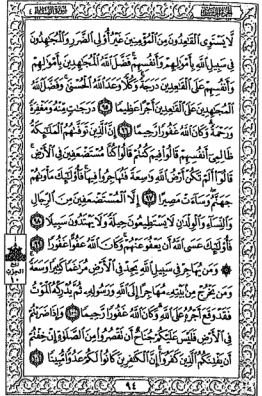 لَّا يَسْتَوِى ٱلْقَٰعِدُونَ مِنَ ٱلْمُؤْمِنِينَ غَيْرُ أُو۟لِى ٱلضَّرَرِ وَٱلْمُجَٰهِدُونَ
فِى سَبِيلِ ٱللَّهِ بِأَمْوَٰلِهِمْ وَأَنفُسِهِمْ فَضَّلَ ٱللَّهُ ٱلْمُجَٰهِدِينَ بِأَمْوَٰلِهِمْ
وَأَنفُسِهِمْ عَلَى ٱلْقَٰعِدِينَ دَرَجَةً وَكُلًّا وَعَدَ ٱللَّهُ ٱلْحُسْنَىٰ وَفَضَّلَ ٱللَّهُ
ٱلْمُجَٰهِدِينَ عَلَى ٱلْقَٰعِدِينَ أَجْرًا عَظِيمًا ٩٥ دَرَجَٰتٍ مِّنْهُ وَمَغْفِرَةً
وَرَحْمَةً وَكَانَ ٱللَّهُ غَفُورًا رَّحِيمًا ٩٦ إِنَّ ٱلَّذِينَ تَوَفَّىٰهُمُ ٱلْمَلَٰٓئِكَةُ
ظَالِمِىٓ أَنفُسِهِمْ قَالُوا۟ فِيمَ كُنتُمْ قَالُوا۟ كُنَّا مُسْتَضْعَفِينَ فِى ٱلْأَرْضِ
قَالُوٓا۟ أَلَمْ تَكُنْ أَرْضُ ٱللَّهِ وَٰسِعَةً فَتُهَاجِرُوا۟ فِيهَا فَأُو۟لَٰٓئِكَ مَأْوَىٰهُمْ
جَهَنَّمُ وَسَآءَتْ مَصِيرًا ٩٧ إِلَّا ٱلْمُسْتَضْعَفِينَ مِنَ ٱلرِّجَالِ
وَٱلنِّسَآءِ وَٱلْوِلْدَٰنِ لَا يَسْتَطِيعُونَ حِيلَةً وَلَا يَهْتَدُونَ سَبِيلًا ٩٨
فَأُو۟لَٰٓئِكَ عَسَى ٱللَّهُ أَن يَعْفُوَ عَنْهُمْ وَكَانَ ٱللَّهُ عَفُوًّا غَفُورًا ٩٩
۞ وَمَن يُهَاجِرْ فِى سَبِيلِ ٱللَّهِ يَجِدْ فِى ٱلْأَرْضِ مُرَٰغَمًا كَثِيرًا وَسَعَةً
وَمَن يَخْرُجْ مِنۢ بَيْتِهِۦ مُهَاجِرًا إِلَى ٱللَّهِ وَرَسُولِهِۦ ثُمَّ يُدْرِكْهُ ٱلْمَوْتُ
فَقَدْ وَقَعَ أَجْرُهُۥ عَلَى ٱللَّهِ وَكَانَ ٱللَّهُ غَفُورًا رَّحِيمًا ١٠٠ وَإِذَا ضَرَبْتُمْ
فِى ٱلْأَرْضِ فَلَيْسَ عَلَيْكُمْ جُنَاحٌ أَن تَقْصُرُوا۟ مِنَ ٱلصَّلَوٰةِ إِنْ خِفْتُمْ
أَن يَفْتِنَكُمُ ٱلَّذِينَ كَفَرُوٓا۟ إِنَّ ٱلْكَٰفِرِينَ كَانُوا۟ لَكُمْ عَدُوًّا مُّبِينًا ١٠١
ربع
الحزب
١٠
٩٤